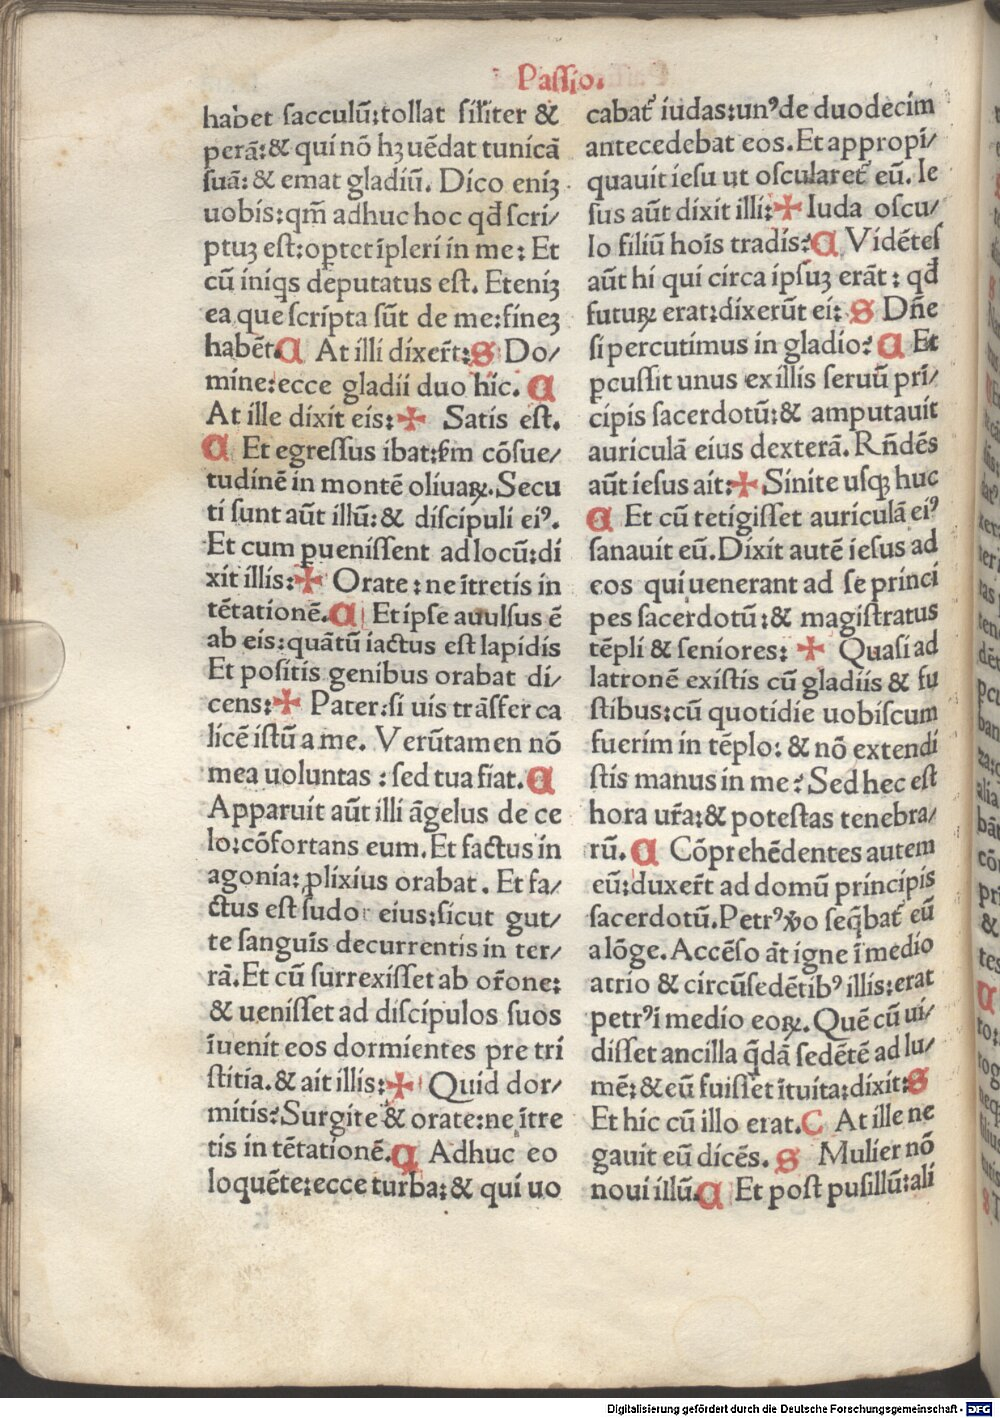 Passio.
habet sacculū:tollat sił̇iter &
perā:& qui nō hꝫ uēdat tunicā
suā: & emat gladiū. Dico enīꝫ
uobis:qm̄ adhuc hoc qđ scri/
ptuꝫ est:optet īpleri in me: Et
cū iniqs deputatus est. Etenīꝫ
ea que scripta sūt de me:fineꝫ
habēt. C At illi dixert̄: S Do/
mine:ecce gladii duo hic. C
At ille dixit eis: ✠ Satis est.
C Et egressus ibat: ẜm cōsue/
tudinē in montē oliuaꝝ. Secu
ti sunt aūt illū:& discipuli eiꝰ.
Et cum puenissent ad locū:di
xit illis: ✠ Orate : ne ītretis in
tētationē. C Et ipse auulsus ē
ab eis:quātū iactus est lapidis
Et positis genibus orabat di/
cens: ✠ Pater:si uis trāsfer ca
licē istū a me. Verūtamen nō
mea uoluntas : sed tua fiat. C
Apparuit aūt illi āgelus de ce
lo:cōfortans eum. Et factus in
agonia: ꝓlixius orabat . Et fa/
ctus est sudor eius:sicut gut/
te sanguīs decurrentis in ter/
rā. Et cū surrexisset ab or̄one:
& uenisset ad discipulos suos
īuenit eos dormientes pre tri
stitia. & ait illis: ✠ Quid dor/
mitis? Surgite & orate:ne ītre
tis in tētationē. C Adhuc eo
loquēte:ecce turba:& qui uo
cabat̄ iudas:unꝰ de duodecim
antecedebat eos. Et appropi/
quauit iesu ut oscularet̄ eū. Ie
sus aūt dixit illi: ✠ Iuda oscu/
lo filiū hoīs tradis? C Vidētes
aūt hi qui circa ipsuꝫ erāt : qđ
futuꝝ erat:dixerūt ei: S Dn̄e
si percutimus in gladio? C Et
ꝑcussit unus ex illis seruū pri/
cipis sacerdotū:& amputauit
auriculā eius dexterā. Rn̄dēs
aūt iesus ait: ✠ Sinite usqꝫ huc
C Et cū tetigisset auriculā eiꝰ
sanauit eū. Dixit autē iesus ad
eos qui uenerant ad se princi
pes sacerdotū:& magistratus
tēpli & seniores: ✠ Quasi ad
latronē existis cū gladiis & fu
stibus:cū quotidie uobiscum
fuerim in tēplo: & nō extendi
stis manus in me? Sed hec est
hora ur̄a:& potestas tenebra/
rū. C Cōprehēdentes autem
eū:duxert̄ ad domū principis
sacerdotū. Petrꝰ ꝟo seq̄bat̄ eū
a lōge. Accēso āt igne ī medio
atrio & circūsedētibꝰ illis:erat
petrꝰ ī medio eoꝝ. Quē cū ui/
disset ancilla q̄dā sedētē ad lu/
mē: & eū fuisset ītuita:dixit: S
Et hic cū illo erat. C At ille ne
gauit eū dicēs. S Mulier nō
noui illū. C Et post pusillū:ali
Digitalisierung gefördert durch die Deutsche Forschungsgemeinschaft - DFG